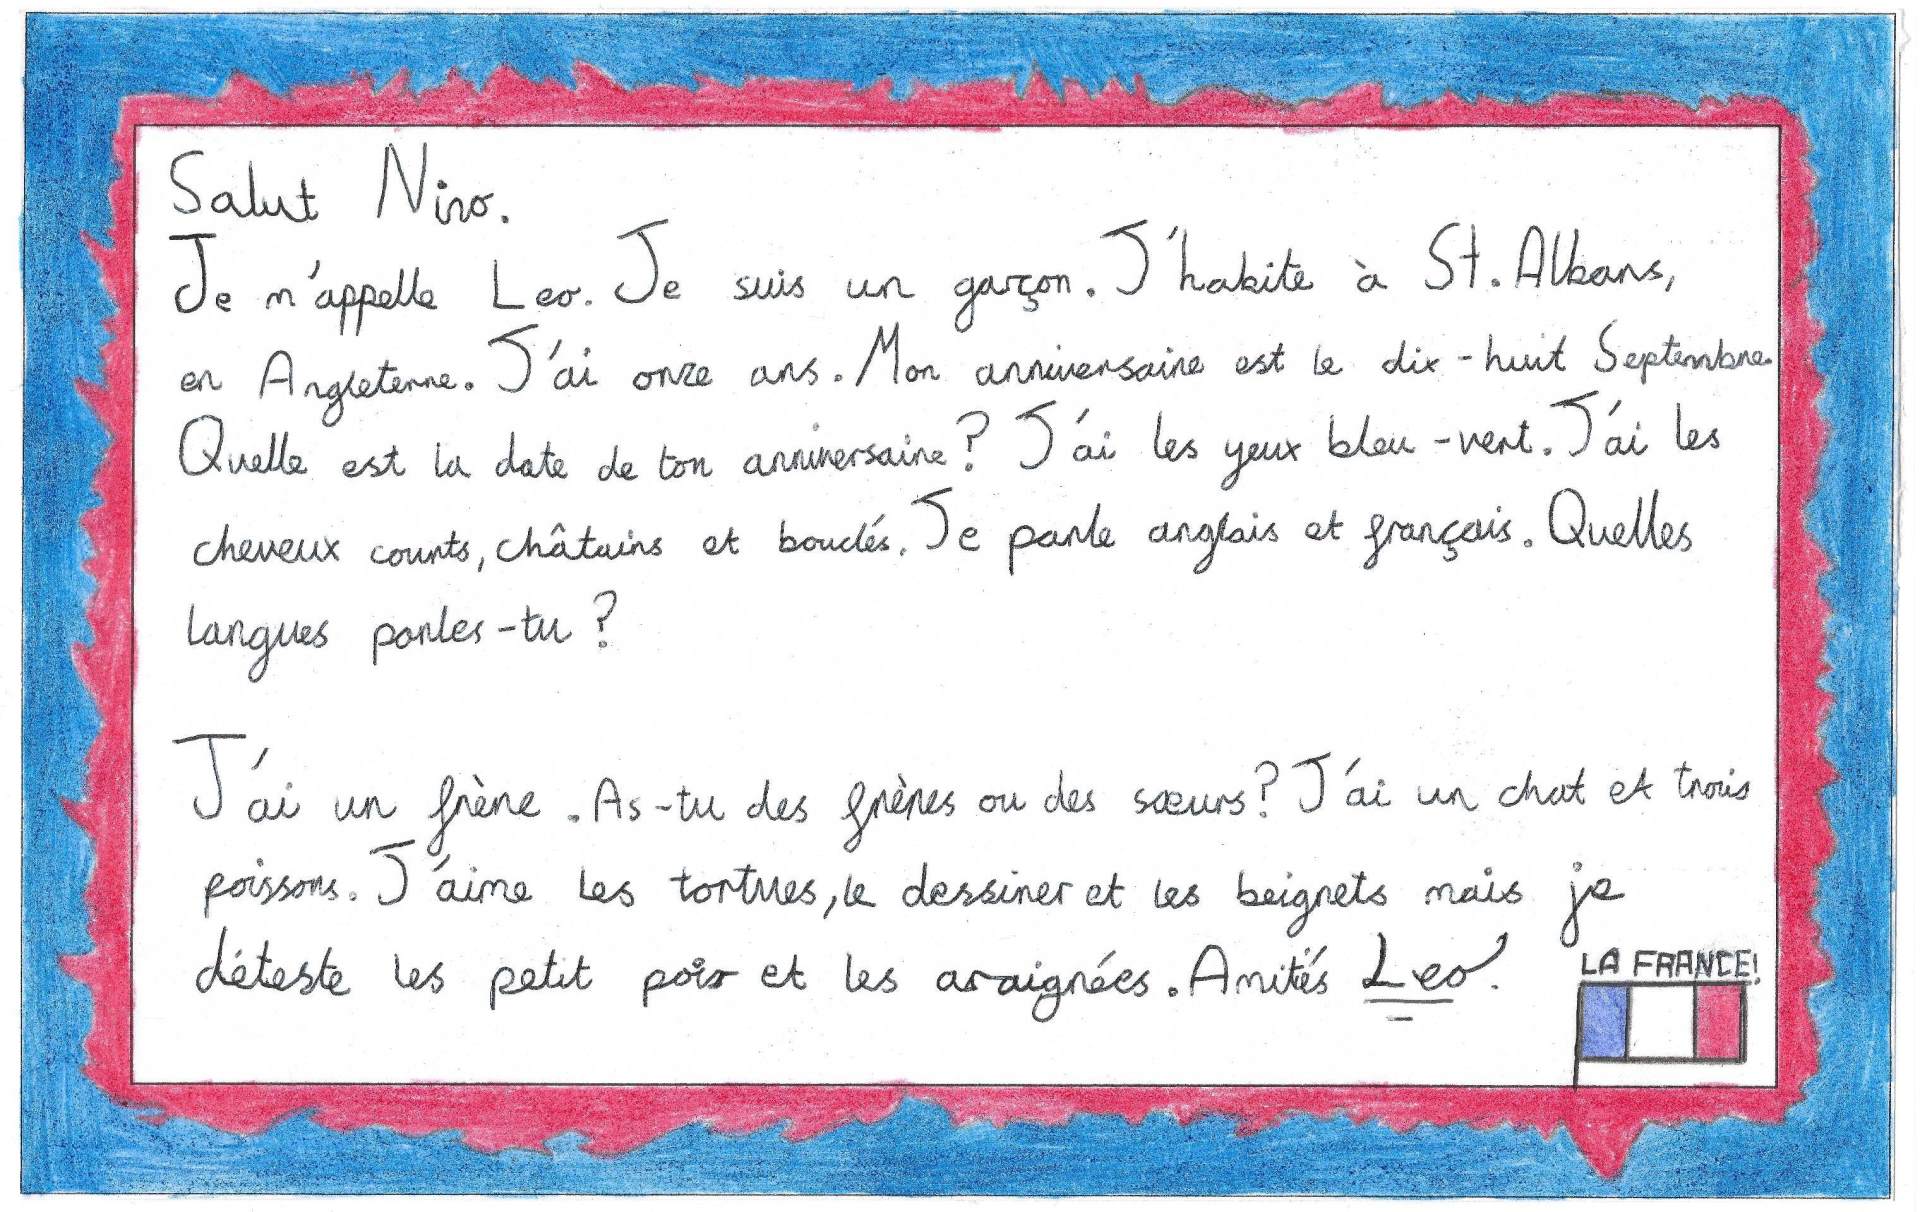 Salut Nino.
Je m'appelle Leo. Je suis un garçon. J'habite à St. Albans,
en Angleterre. J'ai onze ans. Mon anniversaire est le dix-huit Septembre.
Quelle est la date de ton anniversaire? J'ai les yeux bleu-vert. J'ai les
cheveux courts, châtains et bouclés. Je parle anglais et français. Quelles
langues parles-tu?
J'ai un frère. As-tu des frères ou des sœurs? J'ai un chat et trois
poissons. J'aime les tortues, le dessiner et les beignets mais je
déteste les petit pois et les araignées. Amités Leo.
LA FRANCE!